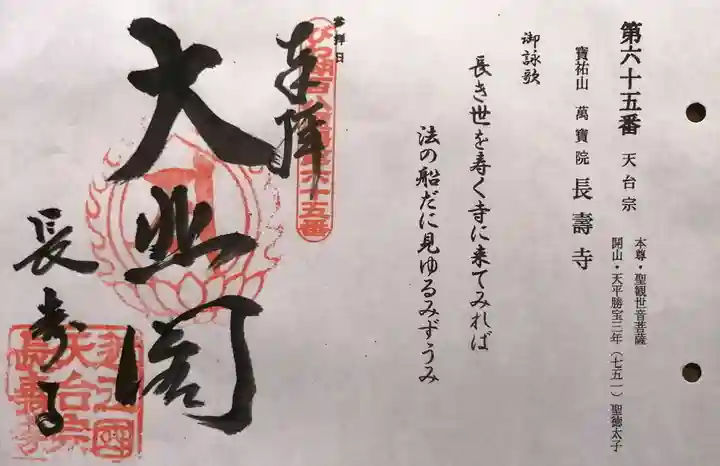 第六十五番 天台宗
本尊・聖観世音菩薩
開山・天平勝宝三年（七五一） 聖徳太子
寶祐山 萬寶院 長壽寺
御詠歌
長き世を寿く寺に来てみれば
法の船だに見ゆるみずうみ
参拝日
奉拝
びわ湖百八霊場第六十五番
大悲閣
長寿寺
近江國
天台宗
長壽寺